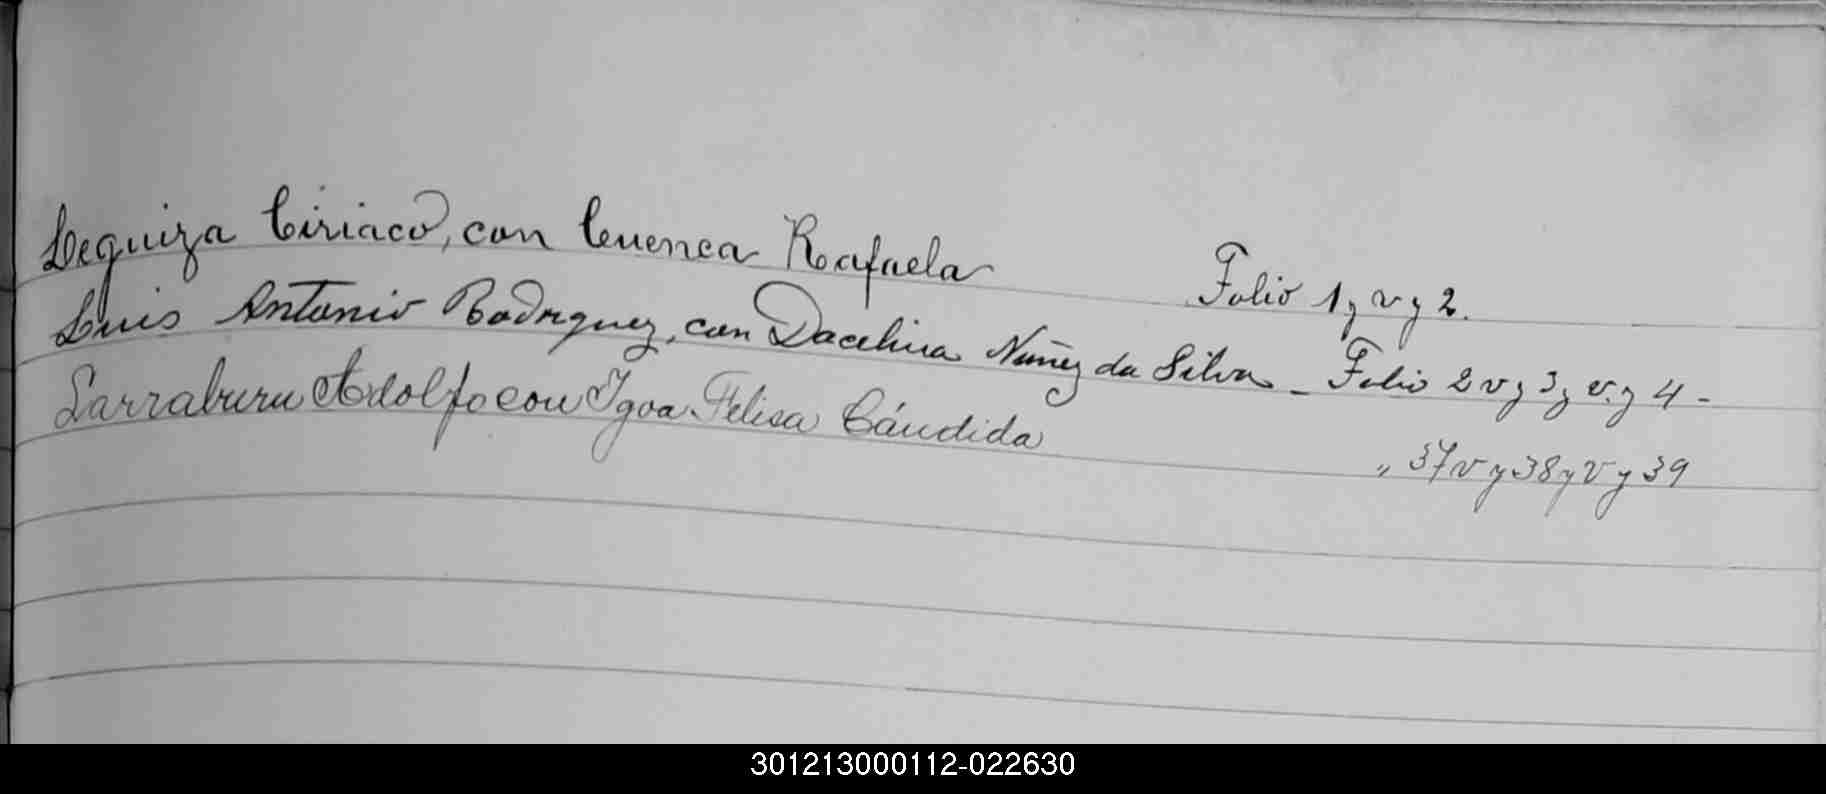 Lequiza Ciriaco, con Cuenca Rafaela Folio 1 y v y 2.
Luis Antonio Rodriguez, con Nuñez da Silva - Folio 2 v y 3 y v. y 4 -
Larraburu Adolfo con Ygoa Felisa Cándida " 37 v y 38 y v y 39
301213000112-022630